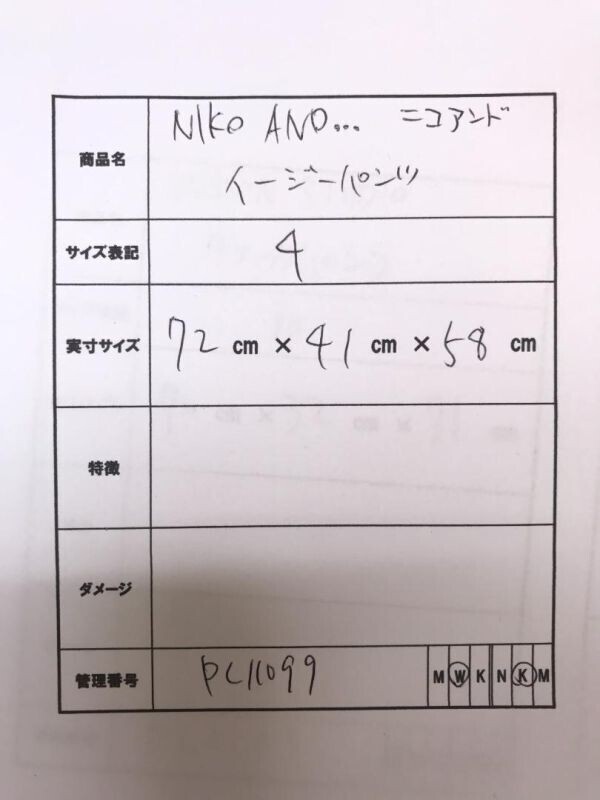 商品名 NIKO AND... ニコアンド
イージーパンツ
サイズ表記 4
実寸サイズ 72 cm × 41 cm × 58 cm
特徴
ダメージ
管理番号 PC11099 M W K N K M